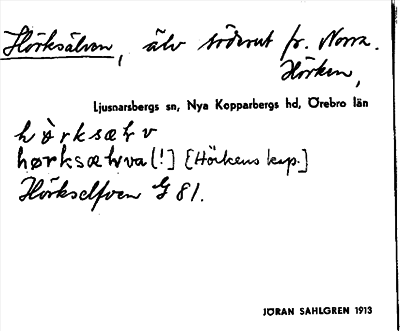 Hörksälven, älv söderut fr. Norra
Hörken,
Ljusnarsbergs sn, Nya Kopparbergs hd, Örebro län
hørksælv
hørksælvva [!] [Hörkens kap.]
Hörkselfven G 81.
JÖRAN SAHLGREN 1913